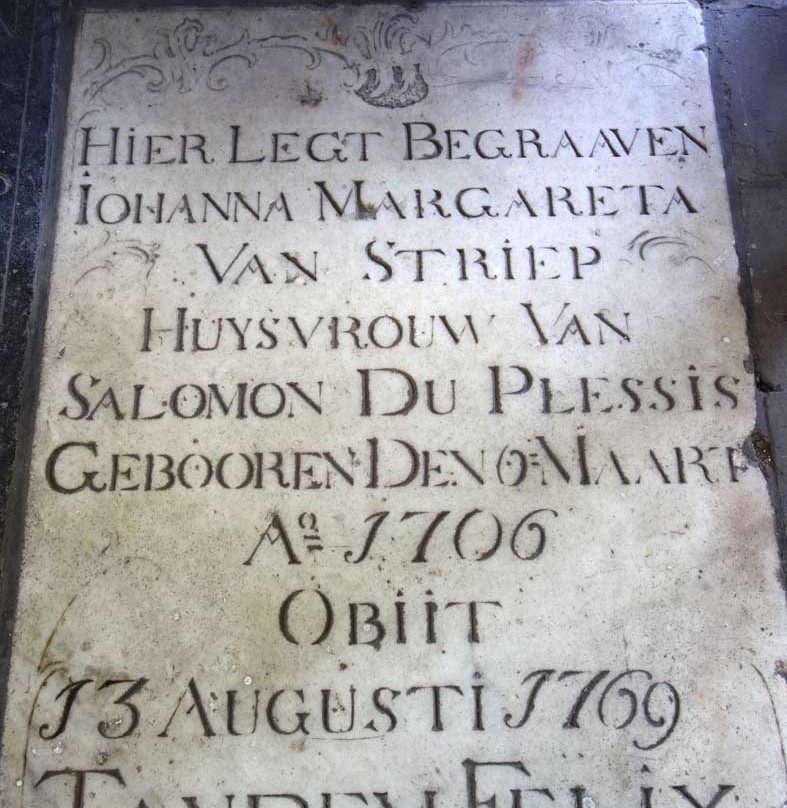 HIER LEGT BEGRAAVEN
IOHANNA MARGARETA
VAN STRIEP
HUYSVROUW VAN
SALOMON DU PLESSIS
GEBOOREN DEN MAART
Aº 1706
OBIIT
13 AUGUSTI 1769
TANDEM FELIX